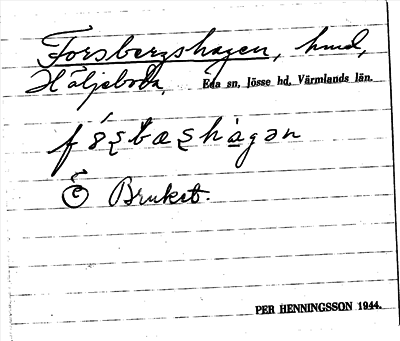 Forsbergshagen, hmd,
Häljeboda, Eda sn, Jösse hd, Värmlands län.
Bruket.
PER HENNINGSSON 1944.